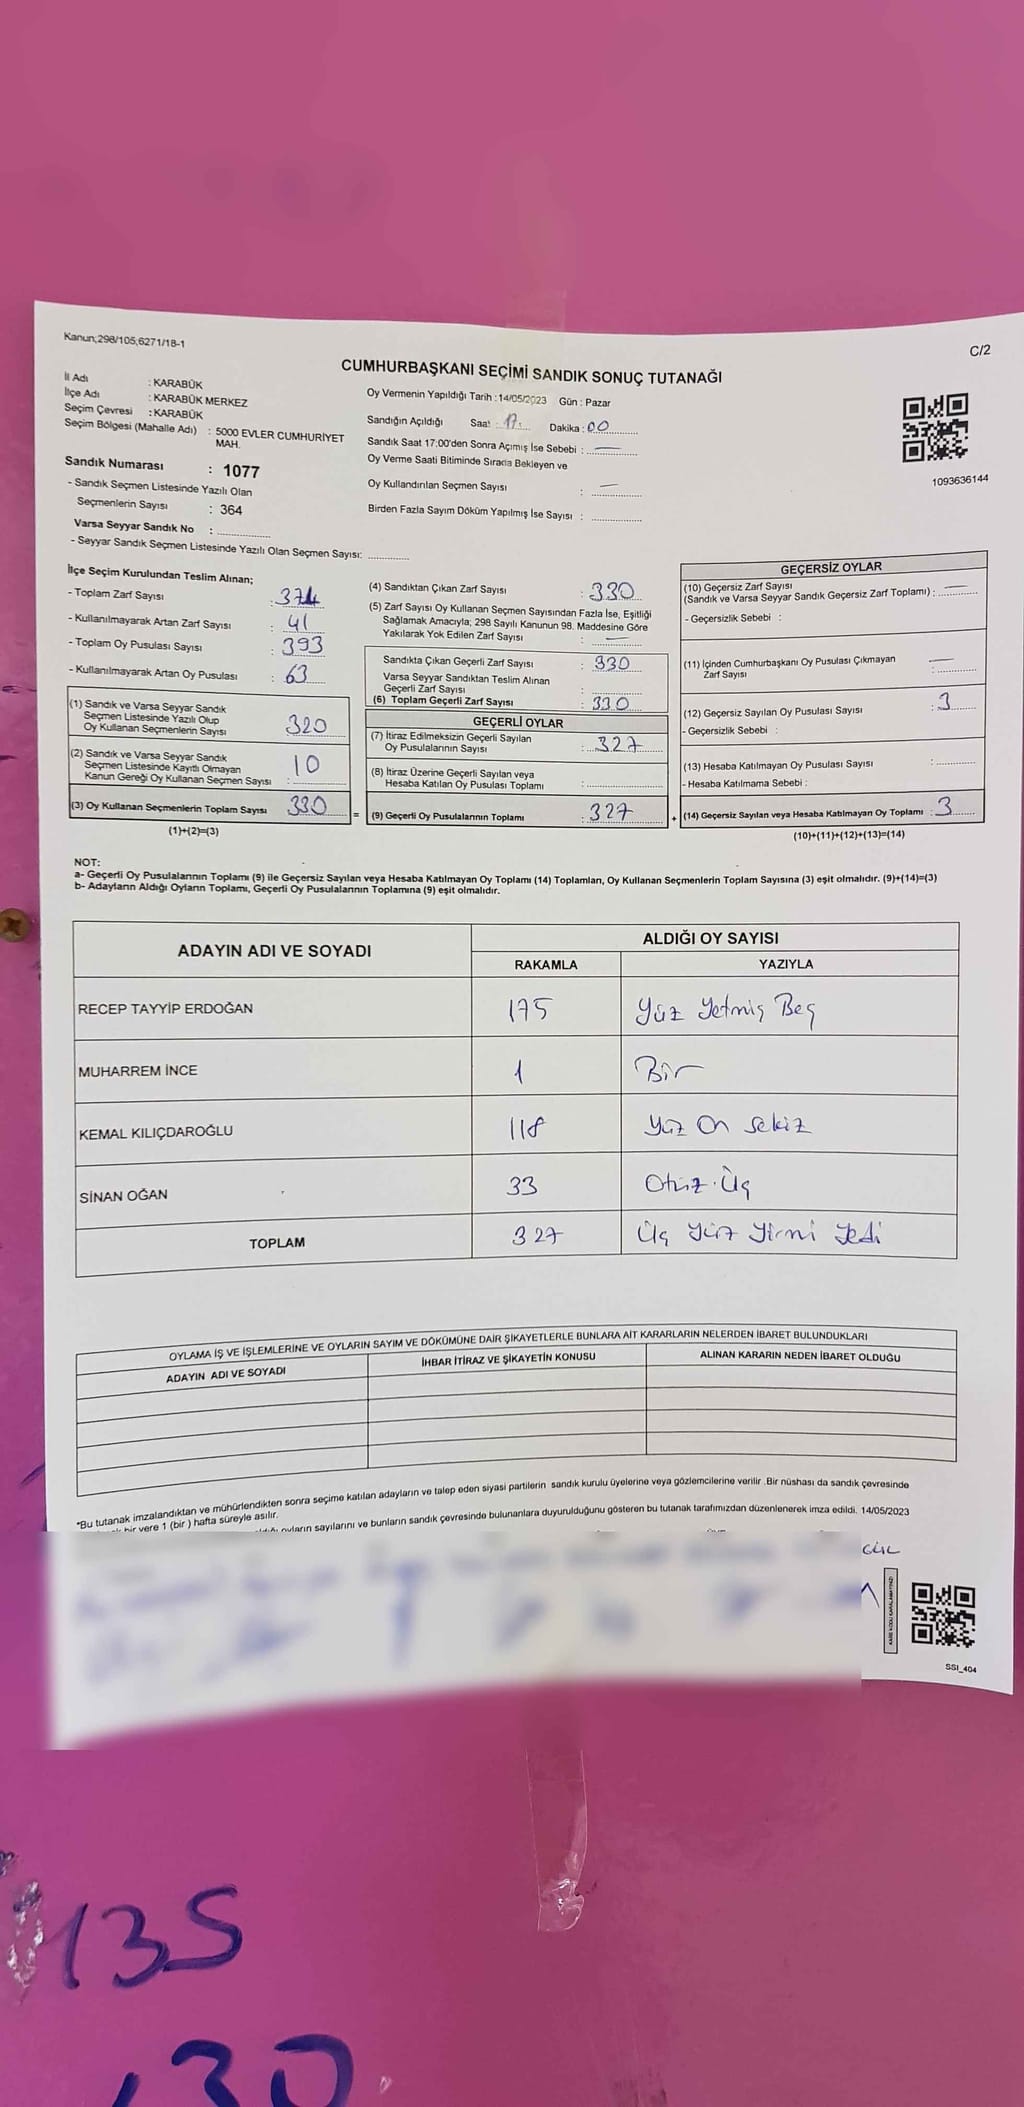 Kanun;298/105;6271/18-1
C/2
CUMHURBAŞKANI SEÇİMİ SANDIK SONUÇ TUTANAĞI
İl Adı : KARABÜK
İlçe Adı : KARABÜK MERKEZ
Seçim Çevresi : KARABÜK
Seçim Bölgesi (Mahalle Adı) : 5000 EVLER CUMHURİYET
MAH.
Sandık Numarası : 1077
- Sandık Seçmen Listesinde Yazılı Olan
Seçmenlerin Sayısı : 364
Varsa Seyyar Sandık No :
- Seyyar Sandık Seçmen Listesinde Yazılı Olan Seçmen Sayısı:
Oy Vermenin Yapıldığı Tarih : 14/05/2023 Gün : Pazar
Sandığın Açıldığı Saat : 17 Dakika : 00
Sandık Saat 17:00'den Sonra Açımış İse Sebebi : —
Oy Verme Saati Bitiminde Sırada Bekleyen ve
Oy Kullandırılan Seçmen Sayısı : —
Birden Fazla Sayım Döküm Yapılmış İse Sayısı :
1093636144
İlçe Seçim Kurulundan Teslim Alınan;
- Toplam Zarf Sayısı : 371
- Kullanılmayarak Artan Zarf Sayısı : 41
- Toplam Oy Pusulası Sayısı : 393
- Kullanılmayarak Artan Oy Pusulası : 63
(1) Sandık ve Varsa Seyyar Sandık
Seçmen Listesinde Yazılı Olup
Oy Kullanan Seçmenlerin Sayısı : 320
(2) Sandık ve Varsa Seyyar Sandık
Seçmen Listesinde Kayıtlı Olmayan
Kanun Gereği Oy Kullanan Seçmen Sayısı : 10
(3) Oy Kullanan Seçmenlerin Toplam Sayısı : 330 =
(1)+(2)=(3)
(4) Sandıktan Çıkan Zarf Sayısı : 330
(5) Zarf Sayısı Oy Kullanan Seçmen Sayısından Fazla İse, Eşitliği
Sağlamak Amacıyla; 298 Sayılı Kanunun 98. Maddesine Göre
Yakılarak Yok Edilen Zarf Sayısı : —
Sandıkta Çıkan Geçerli Zarf Sayısı : 330
Varsa Seyyar Sandıktan Teslim Alınan
Geçerli Zarf Sayısı :
(6) Toplam Geçerli Zarf Sayısı : 330
GEÇERLİ OYLAR
(7) İtiraz Edilmeksizin Geçerli Sayılan
Oy Pusulalarının Sayısı : 327
(8) İtiraz Üzerine Geçerli Sayılan veya
Hesaba Katılan Oy Pusulası Toplamı :
(9) Geçerli Oy Pusulalarının Toplamı : 327 +
GEÇERSİZ OYLAR
(10) Geçersiz Zarf Sayısı
(Sandık ve Varsa Seyyar Sandık Geçersiz Zarf Toplamı) : —
- Geçersizlik Sebebi :
(11) İçinden Cumhurbaşkanı Oy Pusulası Çıkmayan
Zarf Sayısı : —
(12) Geçersiz Sayılan Oy Pusulası Sayısı : 3
- Geçersizlik Sebebi :
(13) Hesaba Katılmayan Oy Pusulası Sayısı :
- Hesaba Katılmama Sebebi :
(14) Geçersiz Sayılan veya Hesaba Katılmayan Oy Toplamı : 3
(10)+(11)+(12)+(13)=(14)
NOT:
a- Geçerli Oy Pusulalarının Toplamı (9) ile Geçersiz Sayılan veya Hesaba Katılmayan Oy Toplamı (14) Toplamları, Oy Kullanan Seçmenlerin Toplam Sayısına (3) eşit olmalıdır. (9)+(14)=(3)
b- Adayların Aldığı Oyların Toplamı, Geçerli Oy Pusulalarının Toplamına (9) eşit olmalıdır.
ADAYIN ADI VE SOYADI ALDIĞI OY SAYISI
RAKAMLA YAZIYLA
RECEP TAYYİP ERDOĞAN 175 Yüz Yetmiş Beş
MUHARREM İNCE 1 Bir
KEMAL KILIÇDAROĞLU 118 Yüz On Sekiz
SİNAN OĞAN 33 Otuz Üç
TOPLAM 327 Üç Yüz Yirmi Yedi
OYLAMA İŞ VE İŞLEMLERİNE VE OYLARIN SAYIM VE DÖKÜMÜNE DAİR ŞİKAYETLERLE BUNLARA AİT KARARLARIN NELERDEN İBARET BULUNDUKLARI
ADAYIN ADI VE SOYADI İHBAR İTİRAZ VE ŞİKAYETİN KONUSU ALINAN KARARIN NEDEN İBARET OLDUĞU
*Bu tutanak imzalandıktan ve mühürlendikten sonra seçime katılan adayların ve talep eden siyasi partilerin sandık kurulu üyelerine veya gözlemcilerine verilir .Bir nüshası da sandık çevresinde
bir yere 1 (bir ) hafta süreyle asılır.
oyların sayılarını ve bunların sandık çevresinde bulunanlara duyurulduğunu gösteren bu tutanak tarafımızdan düzenlenerek imza edildi. 14/05/2023
GÜL
KARE KODU KARALAMAYINIZ!
SSI_404
135
30